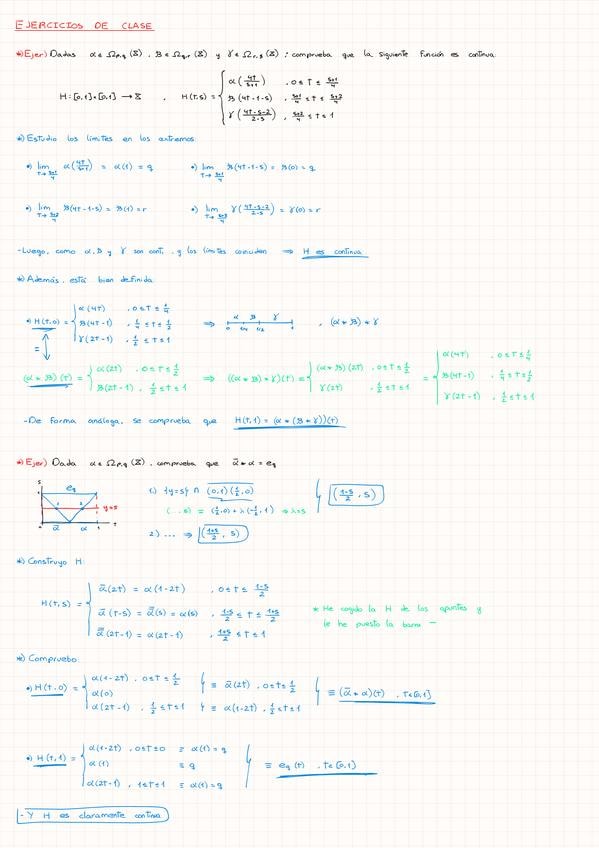 EJERCICIOS DE CLASE
*) Ejer) Dadas α ∈ Ω_{p,q}(X), B ∈ Ω_{q,r}(X) y γ ∈ Ω_{r,s}(X); comprueba que la siguiente función es continua
H: [0,1]×[0,1] → X , H(t,s) = { α(4t/(s+1)) , 0 ≤ t ≤ (s+1)/4
B(4t-1-s) , (s+1)/4 ≤ t ≤ (s+2)/4
γ((4t-s-2)/(2-s)) , (s+2)/4 ≤ t ≤ 1
*) Estudio los límites en los extremos:
•) lim_{t→(s+1)/4} α(4t/(s+1)) = α(1) = q •) lim_{t→(s+1)/4} B(4t-1-s) = B(0) = q
•) lim_{t→(s+2)/4} B(4t-1-s) = B(1) = r •) lim_{t→(s+2)/4} γ((4t-s-2)/(2-s)) = γ(0) = r
- Luego, como α, B y γ son cont. y los límites coinciden ⇒ H es continua
*) Además, está bien definida
•) H(t,0) = { α(4t) , 0 ≤ t ≤ 1/4
B(4t-1) , 1/4 ≤ t ≤ 1/2
γ(2t-1) , 1/2 ≤ t ≤ 1
⇒ α B γ 0 1/4 1/2 1 , (α * B) * γ
=
(α * B)(t) = { α(2t) , 0 ≤ t ≤ 1/2
B(2t-1) , 1/2 ≤ t ≤ 1
⇒ ((α * B) * γ)(t) = { (α * B)(2t) , 0 ≤ t ≤ 1/2
γ(2t) , 1/2 ≤ t ≤ 1
= { α(4t) , 0 ≤ t ≤ 1/4
B(4t-1) , 1/4 ≤ t ≤ 1/2
γ(2t-1) , 1/2 ≤ t ≤ 1
- De forma análoga, se comprueba que H(t,1) = (α * (B * γ))(t)
*) Ejer) Dada α ∈ Ω_{p,q}(X), comprueba que ᾱ * α = e_q
s e_q y=s t ᾱ α
1) {y=s} ∩ (0,1)(1/2,0) ((1-s)/2, s)
(..., s) = (1/2,0) + λ(-1/2,1) ⇒ λ=s
2) ... ⇒ ((1+s)/2, s)
*) Construyo H:
H(t,s) = { ᾱ(2t) = α(1-2t) , 0 ≤ t ≤ (1-s)/2
ᾱ(1-s) = α(s) = α(s) , (1-s)/2 ≤ t ≤ (1+s)/2
α(2t-1) = α(2t-1) , (1+s)/2 ≤ t ≤ 1
* He cogido la H de los apuntes y
le he puesto la barra —
*) Compruebo:
•) H(t,0) = { α(1-2t) , 0 ≤ t ≤ 1/2
α(0)
α(2t-1) , 1/2 ≤ t ≤ 1
≡ ᾱ(2t) , 0 ≤ t ≤ 1/2
≡ α(1-2t) , 1/2 ≤ t ≤ 1
≡ (ᾱ * α)(t) , t ∈ [0,1]
•) H(t,1) = { α(1-2t) , 0 ≤ t ≤ 0 ≡ α(1) = q
α(1) ≡ q
α(2t-1) , 1 ≤ t ≤ 1 ≡ α(1) = q
≡ e_q(t) , t ∈ [0,1]
- Y H es claramente continua